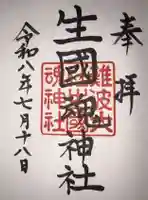 奉拝
生國魂神社
難波大社
生國魂神社
令和八年七月十八日